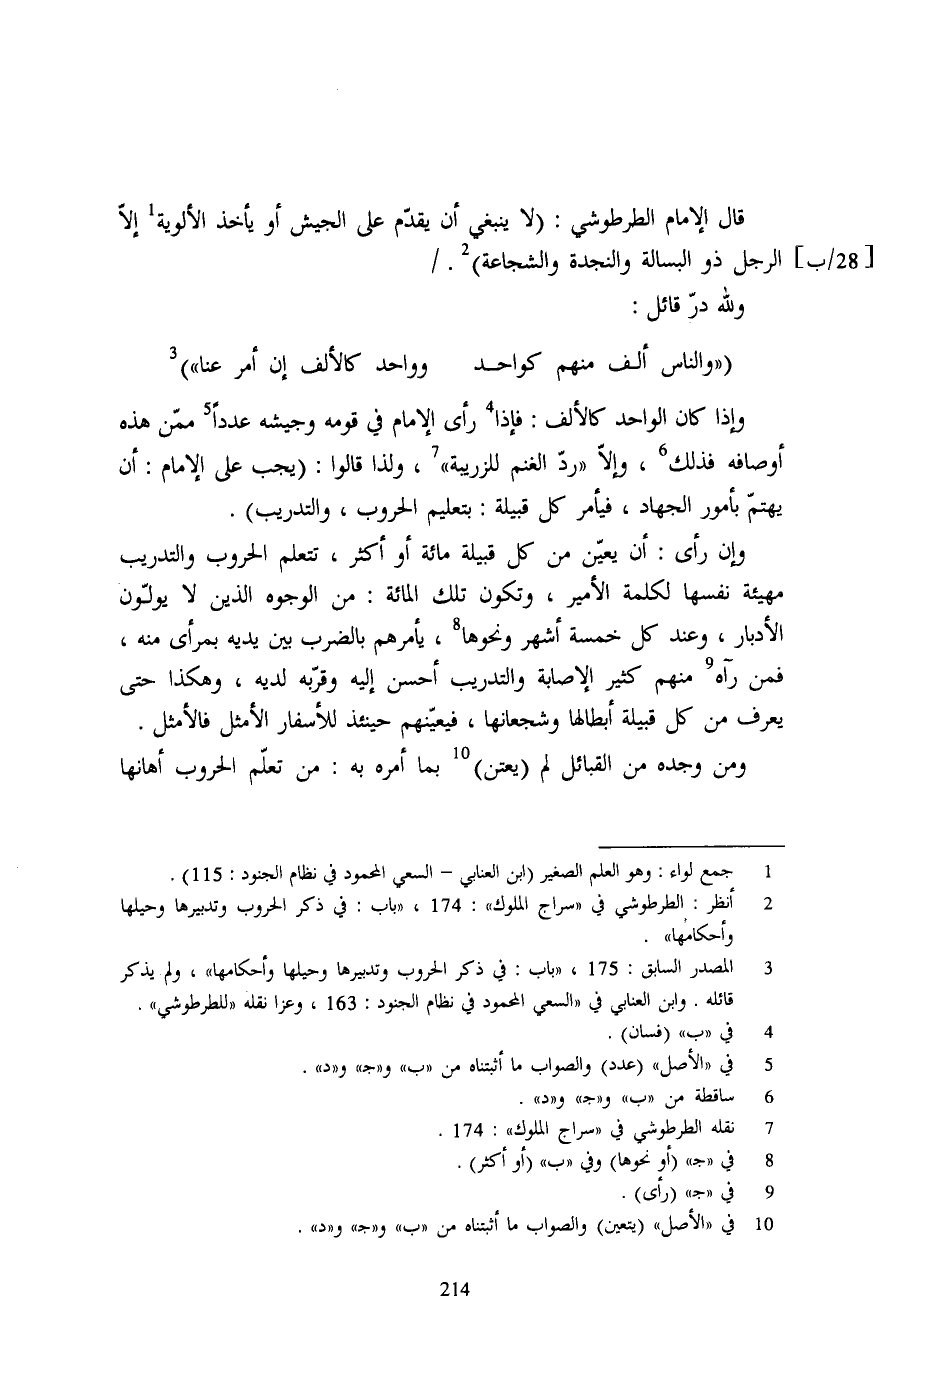 قال الإمام الطرطوشي : (لا ينبغي أن يقدّم على الجيش أو يأخذ الألوية1 إلاّ
[28/ب] الرجل ذو البسالة والنجدة والشجاعة)2 . /
ولله درّ قائل :
(«والناس ألـف منهم كواحـــد وواحد كالألف إن أمر عنا»)3
وإذا كان الواحد كالألف : فإذا4 رأى الإمام في قومه وجيشه عدداً5 ممّن هذه
أوصافه فذلك6 ، وإلاّ «ردّ الغنم للزريبة»7 ، ولذا قالوا : (يجب على الإمام : أن
يهتمّ بأمور الجهاد ، فيأمر كل قبيلة : بتعليم الحروب ، والتدريب) .
وإن رأى : أن يعيّن من كل قبيلة مائة أو أكثر ، تتعلم الحروب والتدريب
مهيئة نفسها لكلمة الأمير ، وتكون تلك المائة : من الوجوه الذين لا يولـّون
الأدبار ، وعند كل خمسة أشهر ونحوها8 ، يأمرهم بالضرب بين يديه بمرأى منه ،
فمن رآه9 منهم كثير الإصابة والتدريب أحسن إليه وقرّبه لديه ، وهكذا حتى
يعرف من كل قبيلة أبطالها وشجعانها ، فيعيّنهم حينئذ للأسفار الأمثل فالأمثل .
ومن وجده من القبائل لم (يعتن)10 بما أمره به : من تعلّم الحروب أهانها
1 جمع لواء : وهو العلم الصغير (ابن العنابي – السعي المحمود في نظام الجنود : 115) .
2 أنظر : الطرطوشي في «سراج الملوك» : 174 ، «باب : في ذكر الحروب وتدبيرها وحيلها
وأحكامها» .
3 المصدر السابق : 175 ، «باب : في ذكر الحروب وتدبيرها وحيلها وأحكامها» ، ولم يذكر
قائله . وابن العنابي في «السعي المحمود في نظام الجنود : 163 ، وعزا نقله «للطرطوشي» .
4 في «ب» (فسان) .
5 في «الأصل» (عدد) والصواب ما أثبتناه من «ب» و«جـ» و«د» .
6 ساقطة من «ب» و«جـ» و«د» .
7 نقله الطرطوشي في «سراج الملوك» : 174 .
8 في «جـ» (أو نحوها) وفي «ب» (أو أكثر) .
9 في «جـ» (رأى) .
10 في «الأصل» (يتعين) والصواب ما أثبتناه من «ب» و«جـ» و«د» .
214